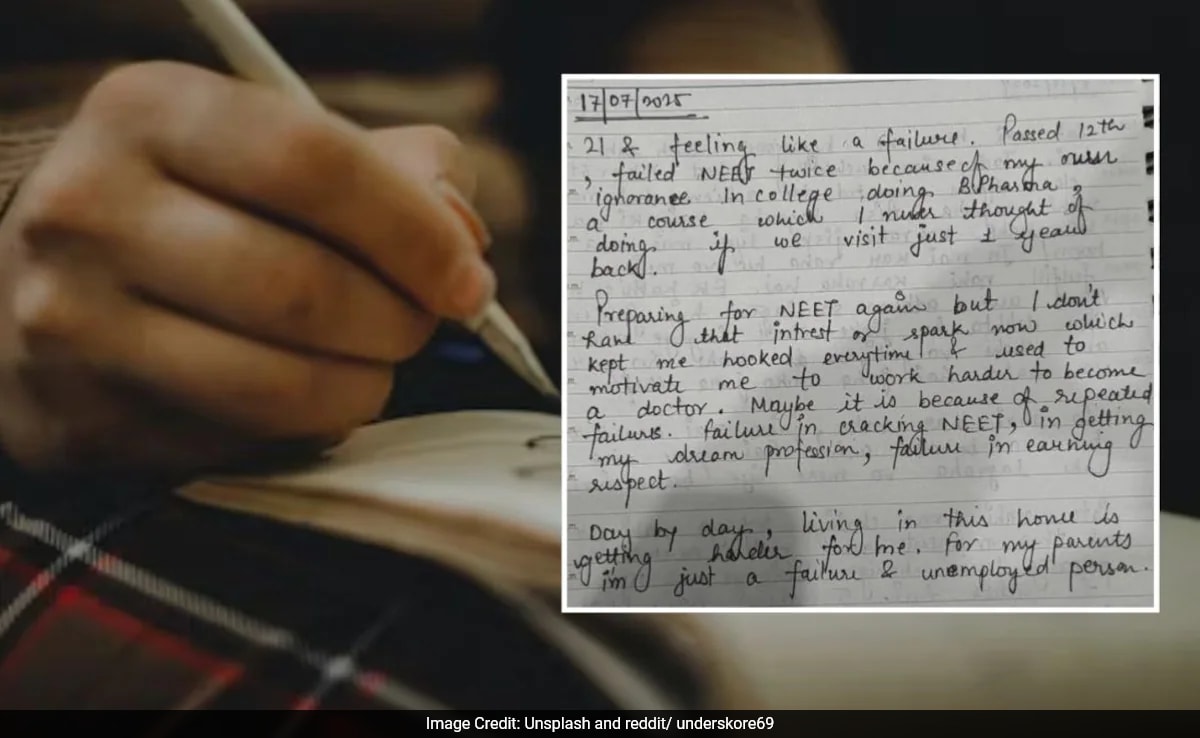 17/07/2025
21 & feeling like a failure. Passed 12th
, failed NEET twice because of my own
ignorance. In college doing BPharma,
a course which I never thought of
doing if we visit just 1 year
back.
Preparing for NEET again but I don't
have that intrest or spark now which
kept me hooked everytime & used to
motivate me to work harder to become
a doctor. Maybe it is because of repeated
failures. failure in cracking NEET, in getting
my dream profession, failure in earning
respect.
Day by day, living in this home is
getting harder for me. For my parents
im just a failure & unemployed person.
Image Credit: Unsplash and reddit/ underskore69